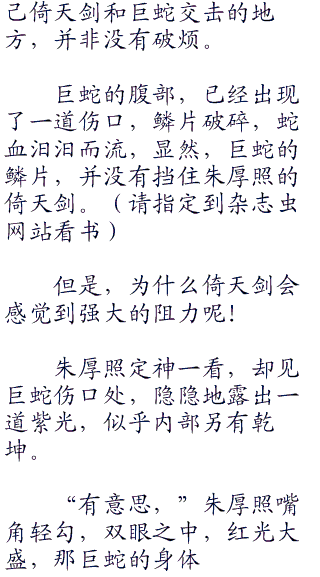 己倚天剑和巨蛇交击的地
方，并非没有破烦。
巨蛇的腹部，已经出现
了一道伤口，鳞片破碎，蛇
血汩汩而流，显然，巨蛇的
鳞片，并没有挡住朱厚照的
倚天剑。（请指定到杂志虫
网站看书）
但是，为什么倚天剑会
感觉到强大的阻力呢！
朱厚照定神一看，却见
巨蛇伤口处，隐隐地露出一
道紫光，似乎内部另有乾
坤。
“有意思，”朱厚照嘴
角轻勾，双眼之中，红光大
盛，那巨蛇的身体